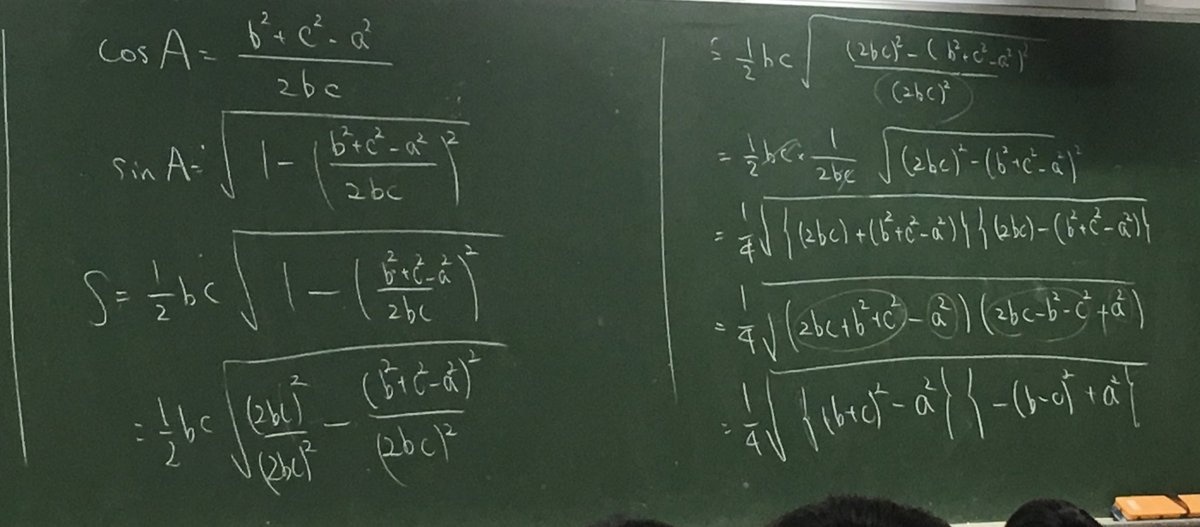 cos A = (b² + c² - a²) / 2bc
sin A = √(1 - ((b² + c² - a²) / 2bc)²)
S = 1/2 bc √(1 - ((b² + c² - a²) / 2bc)²)
= 1/2 bc √((2bc)² / (2bc)² - (b² + c² - a²)² / (2bc)²)
= 1/2 bc √(((2bc)² - (b² + c² - a²)²) / (2bc)²)
= 1/2 bc · 1/2bc √((2bc)² - (b² + c² - a²)²)
= 1/4 √({(2bc) + (b² + c² - a²)} {(2bc) - (b² + c² - a²)})
= 1/4 √((2bc + b² + c² - a²)(2bc - b² - c² + a²))
= 1/4 √({(b + c)² - a²} {-(b - c)² + a²})